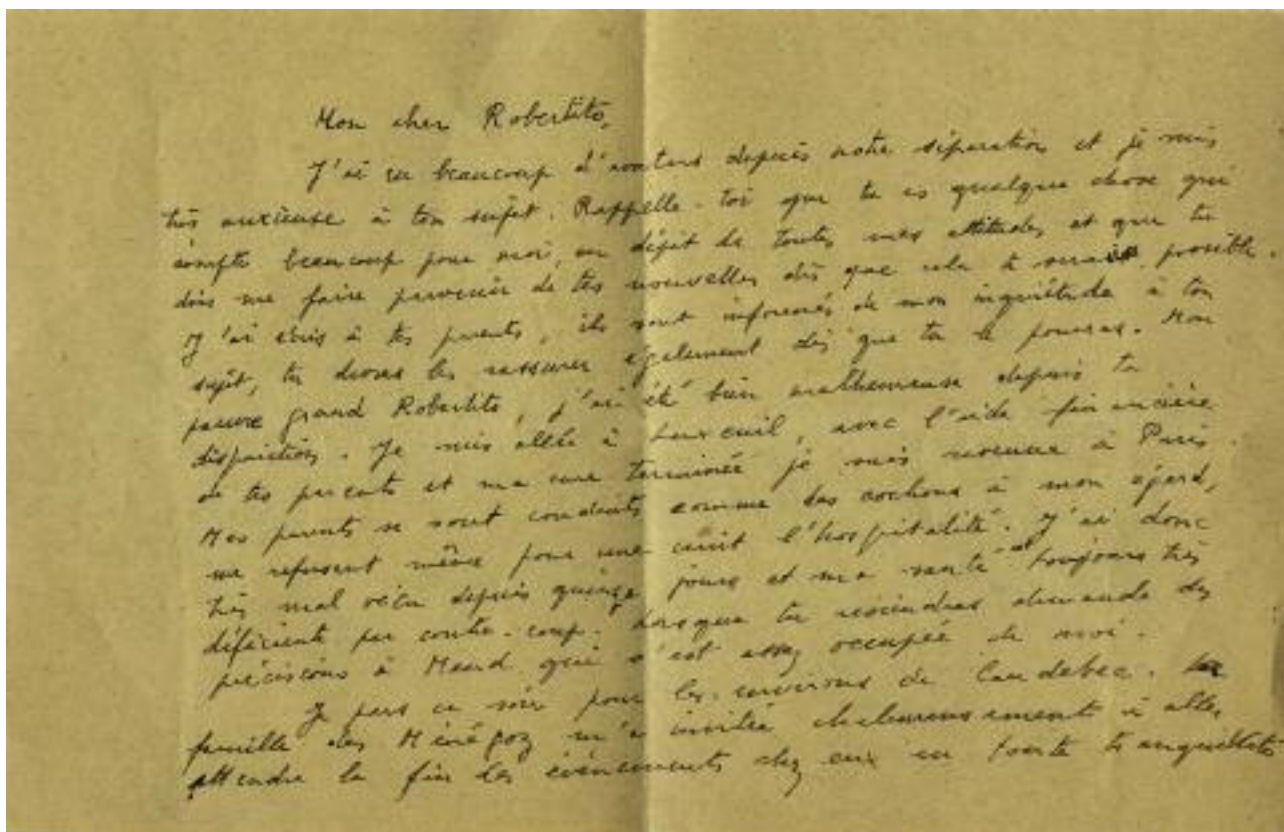 Mon cher Robertito,
J'ai eu beaucoup d'avatars depuis notre séparation et je suis
très anxieuse à ton sujet. Rappelle-toi que tu es quelque chose qui
compte beaucoup pour moi, en dépit de toutes mes attitudes et que tu
dois me faire parvenir de tes nouvelles dès que cela te sera possible.
J'ai écris à tes parents, ils sont informés de mon inquiétude à ton
sujet, tu devras les rassurer également dès que tu le pourras. Mon
pauvre grand Robertito, j'ai été bien malheureuse depuis ta
disparition. Je suis allée à Luxeuil, avec l'aide financière
de tes parents et ma cure terminée je suis revenue à Paris.
Mes parents se sont conduits comme des cochons à mon égard,
me refusent même pour une nuit l'hospitalité. J'ai donc
très mal vécu depuis quinze jours et ma santé est toujours très
déficiente par contre-coup. Lorsque tu reviendras demande des
précisions à qui s'est assez occupée de moi.
Je pars ce soir pour les environs de Caudebec. La
famille des m'a invitée chaleureusement à aller
attendre la fin des évènements chez eux en toute tranquillité